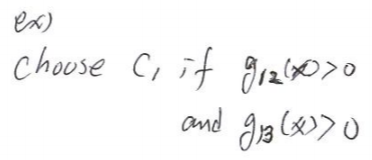 ex)
choose C₁ if g₁₂(x)>0
and g₁₃(x)>0